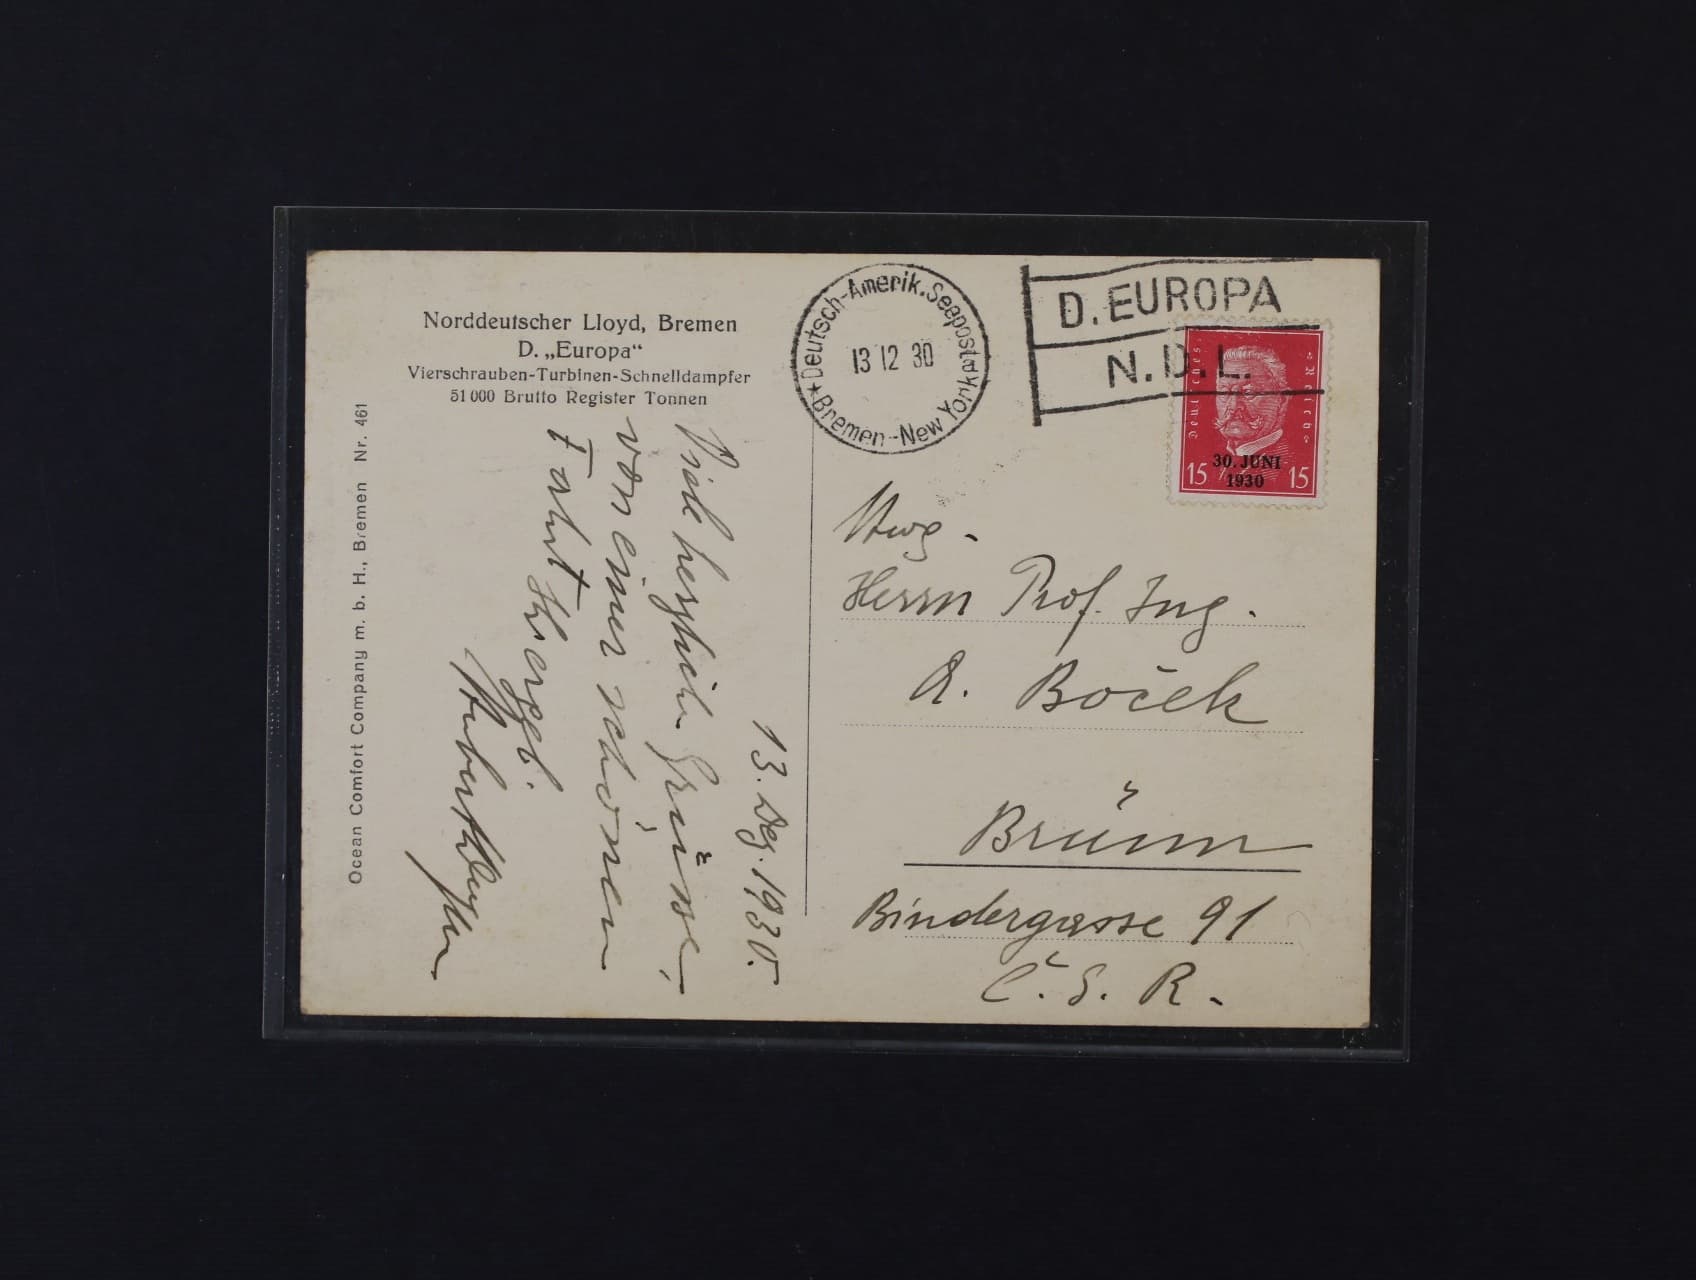 Norddeutscher Lloyd, Bremen
D. „Europa“
Vierschrauben-Turbinen-Schnelldampfer
51 000 Brutto Register Tonnen
Ocean Comfort Company m. b. H., Bremen Nr. 461
★ Deutsch-Amerik. Seepost ★
Bremen-New York
13 12 30
D. EUROPA
N. D. L.
Deutsches Reich
30. JUNI
1930
15 15
13. Dez. 1930.
Viele herzliche Grüsse
von einer schönen
Fahrt Ihr ergeb.
Herrn Prof. Ing.
A. Boček
Brünn
Bindergasse 91
Č. S. R.